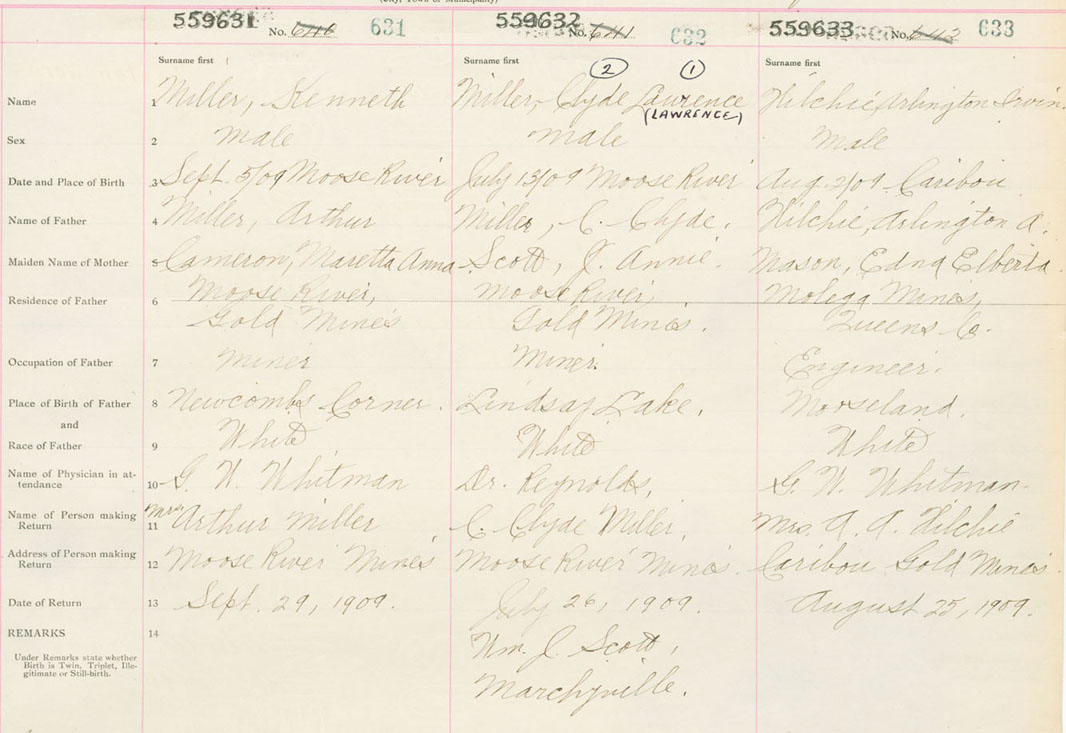 (City, Town or Municipality)
559631 No. 631
559632 No. 641 632
559633 No. 633
Surname first
Surname first 2 1
Surname first
Name 1 Miller, Kenneth
Miller, Clyde Laurence
(LAWRENCE)
Hilchie, Arlington Irvin.
Sex 2 male
male
Male
Date and Place of Birth 3 Sept. 5/09 Moose River
July 13/09 Moose River
Aug. 2/09 Caribou
Name of Father 4 Miller, Arthur
Miller, C. Clyde.
Hilchie, Arlington A.
Maiden Name of Mother 5 Cameron, Maretta Anna
Scott, J. Annie.
Mason, Edna Elberta
Residence of Father 6 Moose River,
Gold Mines
Moose River,
Gold Mines.
Molega Mines,
Queens Co.
Occupation of Father 7 Miner
Miner.
Engineer.
Place of Birth of Father 8 Newcombs Corner.
Lindsay Lake.
Mooseland.
and
Race of Father 9 White
White
White
Name of Physician in at-
tendance 10 G. W. Whitman
Dr. Reynolds,
G. W. Whitman.
Name of Person making
Return 11 Mrs. Arthur Miller
C. Clyde Miller,
Mrs. A. A. Hilchie
Address of Person making
Return 12 Moose River Mines
Moose River Mines.
Caribou Gold Mines.
Date of Return 13 Sept. 29, 1909.
July 26, 1909.
August 25, 1909.
REMARKS 14
Under Remarks state whether
Birth is Twin, Triplet, Ille-
gitimate or Still-birth.
Wm. J. Scott,
Marchyville.